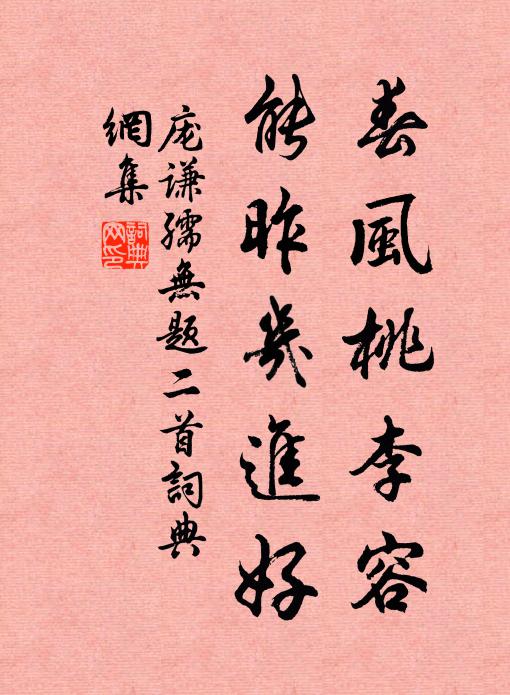 春風桃李容
能昨幾進好
庞謙孺無題二首詞典
網集
詞典網印